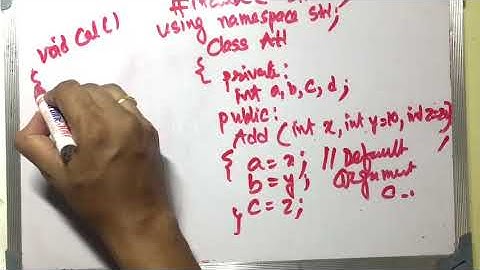 void Cal()
{
using namespace std;
Class Add
{ private:
int a, b, c, d;
public:
Add (int x, int y=10, int z=20)
{ a = x; // Default
b = y; argument
c = z;
}